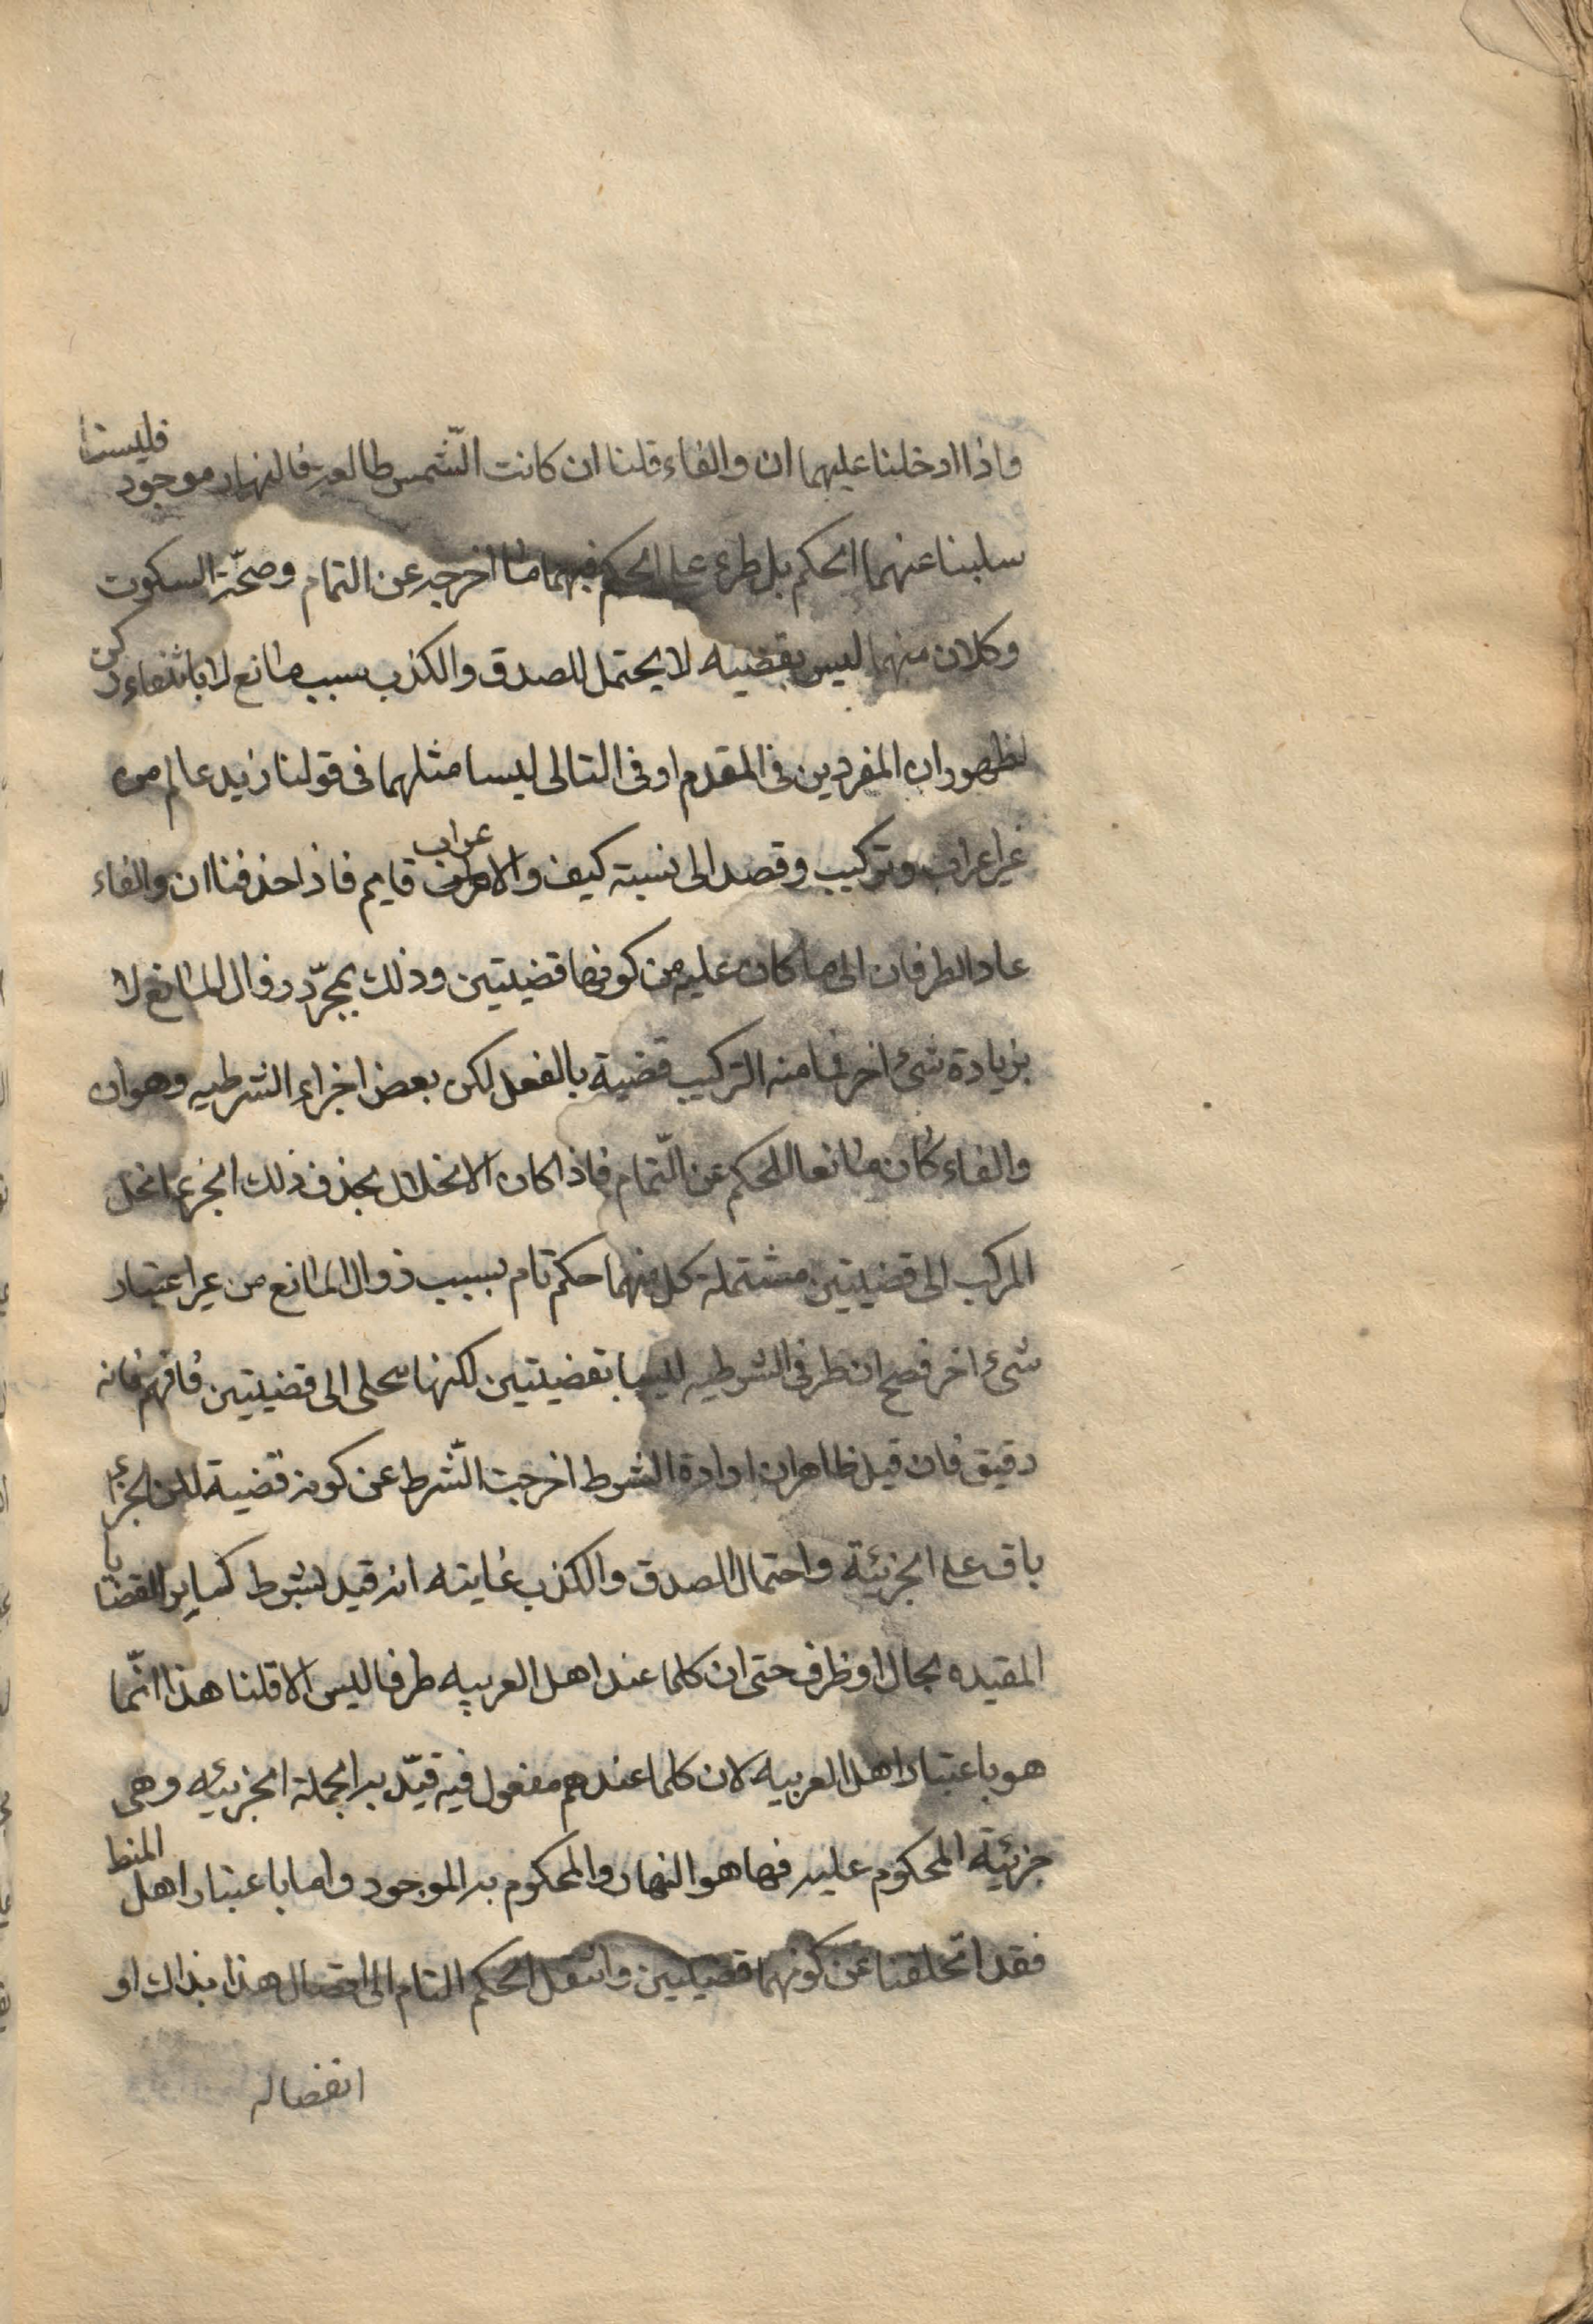 واذا ادخلنا عليهما ان والفاء قلنا ان كانت الشّمس طالعة فالنهار موجود فليستا
سلبنا عنهما الحكم بل طرء على الحكم فيهما ما اخرجه عن التمام وصحّة السكوت
وكلان منهما ليس بقضيه لا يحتمل للصدق والكذب بسبب مانع لا بانتفاء ركن
لظهور ان المفردين في المقدم او في التالى ليسا مثلهما فى قولنا زيد عالم من
غير اعراب وتركيب وقصد الى نسبته كيف والاعراب قايم فاذا حذفنا ان والفاء
عاد الطرفان الى ما كان عليه من كونهما قضيتين وذلك بمجرّد زوال المانع لا
بزيادة شئ اخر فما منه التركيب قضية بالفعل لكن بعض اجزاء الشرطيه وهو ان
والفاء كان مانعا للحكم عن التّمام فاذا كان الانحلال بحذف ذلك الجزء انحل
المركب الى قضيتين مشتملة كل منهما حكم تام بسبب زوال المانع من غير اعتبار
شئ اخر فصح ان طرفى الشرطيه ليسا بقضيتين لكنها تنحل الى قضيتين فافهم فانه
دقيق فان قيل ظاهر ان اداة الشرط اخرجت الشّرط عن كونه قضية لكن الجزء
باق على الجزئية واحتمال الصدق والكذب غايته انه قيد بشرط كساير القضايا
المقيده بحال او ظرف حتى ان كلما عند اهل العربيه ظرفا ليس الا قلنا هذا انّما
هو باعتبار اهل العربيه لان كلما عندهم مفعول فيه قيّد به الجملة الجزئيه وهى
جزئية المحكوم عليه فيها هو النهار والمحكوم به الموجود واما باعتبار اهل المنط
فقد انخلعنا عن كونهما قضيتين وانتقل الحكم التام الى اتصال هذا بذاك او
انفصاله